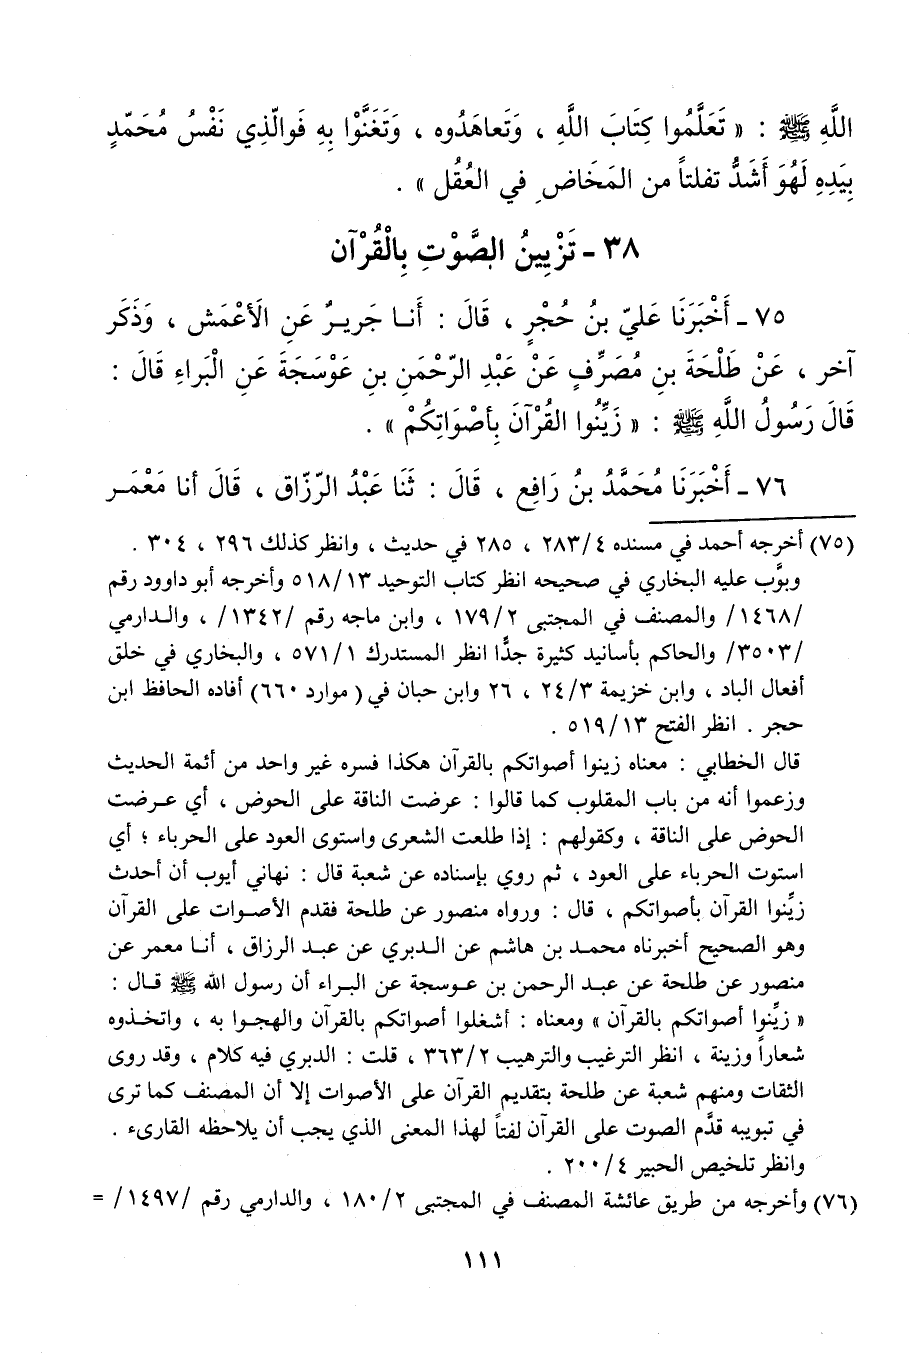 اللَّهِ ﷺ : « تَعَلَّمُوا كِتَابَ اللَّهِ ، وَتَعاهَدُوه ، وَتَغَنَّوْا بِهِ فَوالَّذِي نَفْسُ مُحَمّدٍ
بِيَدِهِ لَهُوَ أَشَدُّ تفلتاً من المَخَاضِ في العُقُل » .
٣٨ - تَزْيِينُ الصَّوْتِ بِالْقُرْآن
٧٥ - أَخْبَرَنَا عَليّ بنُ حُجْرٍ ، قَالَ : أَنا جَريرٌ عَنِ الَأعْمَش ، وَذَكَر
آخر ، عَنْ طَلْحَةَ بنِ مُصَرِّفٍ عَنْ عَبْدِ الرّحْمَنِ بنِ عَوْسَجَةَ عَنِ الْبَراءِ قَالَ :
قَالَ رَسُولُ اللَّهِ ﷺ : « زَيِّنُوا القُرْآنَ بِأصْوَاتِكُمْ » .
٧٦ - أَخْبَرَنَا مُحَمَّدُ بنُ رَافِع ، قَالَ : ثَنَا عَبْدُ الرّزّاق ، قَالَ أنا مَعْمَر
(٧٥) أخرجه أحمد في مسنده ٢٨٣/٤ ، ٢٨٥ في حديث ، وانظر كذلك ٢٩٦ ، ٣٠٤ .
وبوَّب عليه البخاري في صحيحه انظر كتاب التوحيد ٥١٨/١٣ وأخرجه أبو داوود رقم
/١٤٦٨/ والمصنف في المجتبى ١٧٩/٢ ، وابن ماجه رقم /١٣٤٢/ ، والدارمي
/٣٥٠٣/ والحاكم بأسانيد كثيرة جدًّا انظر المستدرك ٥٧١/١ ، والبخاري في خلق
أفعال الباد ، وابن خزيمة ٢٤/٣ ، ٢٦ وابن حبان في ( موارد ٦٦٠) أفاده الحافظ ابن
حجر . انظر الفتح ٥١٩/١٣ .
قال الخطابي : معناه زينوا أصواتكم بالقرآن هكذا فسره غير واحد من أئمة الحديث
وزعموا أنه من باب المقلوب كما قالوا : عرضت الناقة على الحوض ، أي عرضت
الحوض على الناقة ، وكقولهم : إذا طلعت الشعرى واستوى العود على الحرباء ؛ أي
استوت الحرباء على العود ، ثم روي بإسناده عن شعبة قال : نهاني أيوب أن أحدث
زيِّنوا القرآن بأصواتكم ، قال : ورواه منصور عن طلحة فقدم الأصوات على القرآن
وهو الصحيح أخبرناه محمد بن هاشم عن الدبري عن عبد الرزاق ، أنا معمر عن
منصور عن طلحة عن عبد الرحمن بن عوسجة عن البراء أن رسول الله ﷺ قال :
« زيِّنوا أصواتكم بالقرآن » ومعناه : أشغلوا أصواتكم بالقرآن والهجوا به ، واتخذوه
شعاراً وزينة ، انظر الترغيب والترهيب ٣٦٣/٢ ، قلت : الدبري فيه كلام ، وقد روى
الثقات ومنهم شعبة عن طلحة بتقديم القرآن على الأصوات إلا أن المصنف كما ترى
في تبويبه قدَّم الصوت على القرآن لفتاً لهذا المعنى الذي يجب أن يلاحظه القارىء .
وانظر تلخيص الحبير ٢٠٠/٤ .
(٧٦) وأخرجه من طريق عائشة المصنف في المجتبى ١٨٠/٢ ، والدارمي رقم /١٤٩٧/ =
١١١